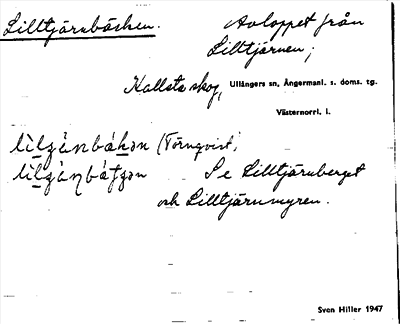 Lilltjärnbäcken.
Avloppet från
Lilltjärnen;
Kallsta skog, Ullångers sn, Ångermanl. s. doms. tg.
Västernorrl. l.
(Törnqvist;
Se Lilltjärnberget
och Lilltjärnmyren.
Sven Hiller 1947